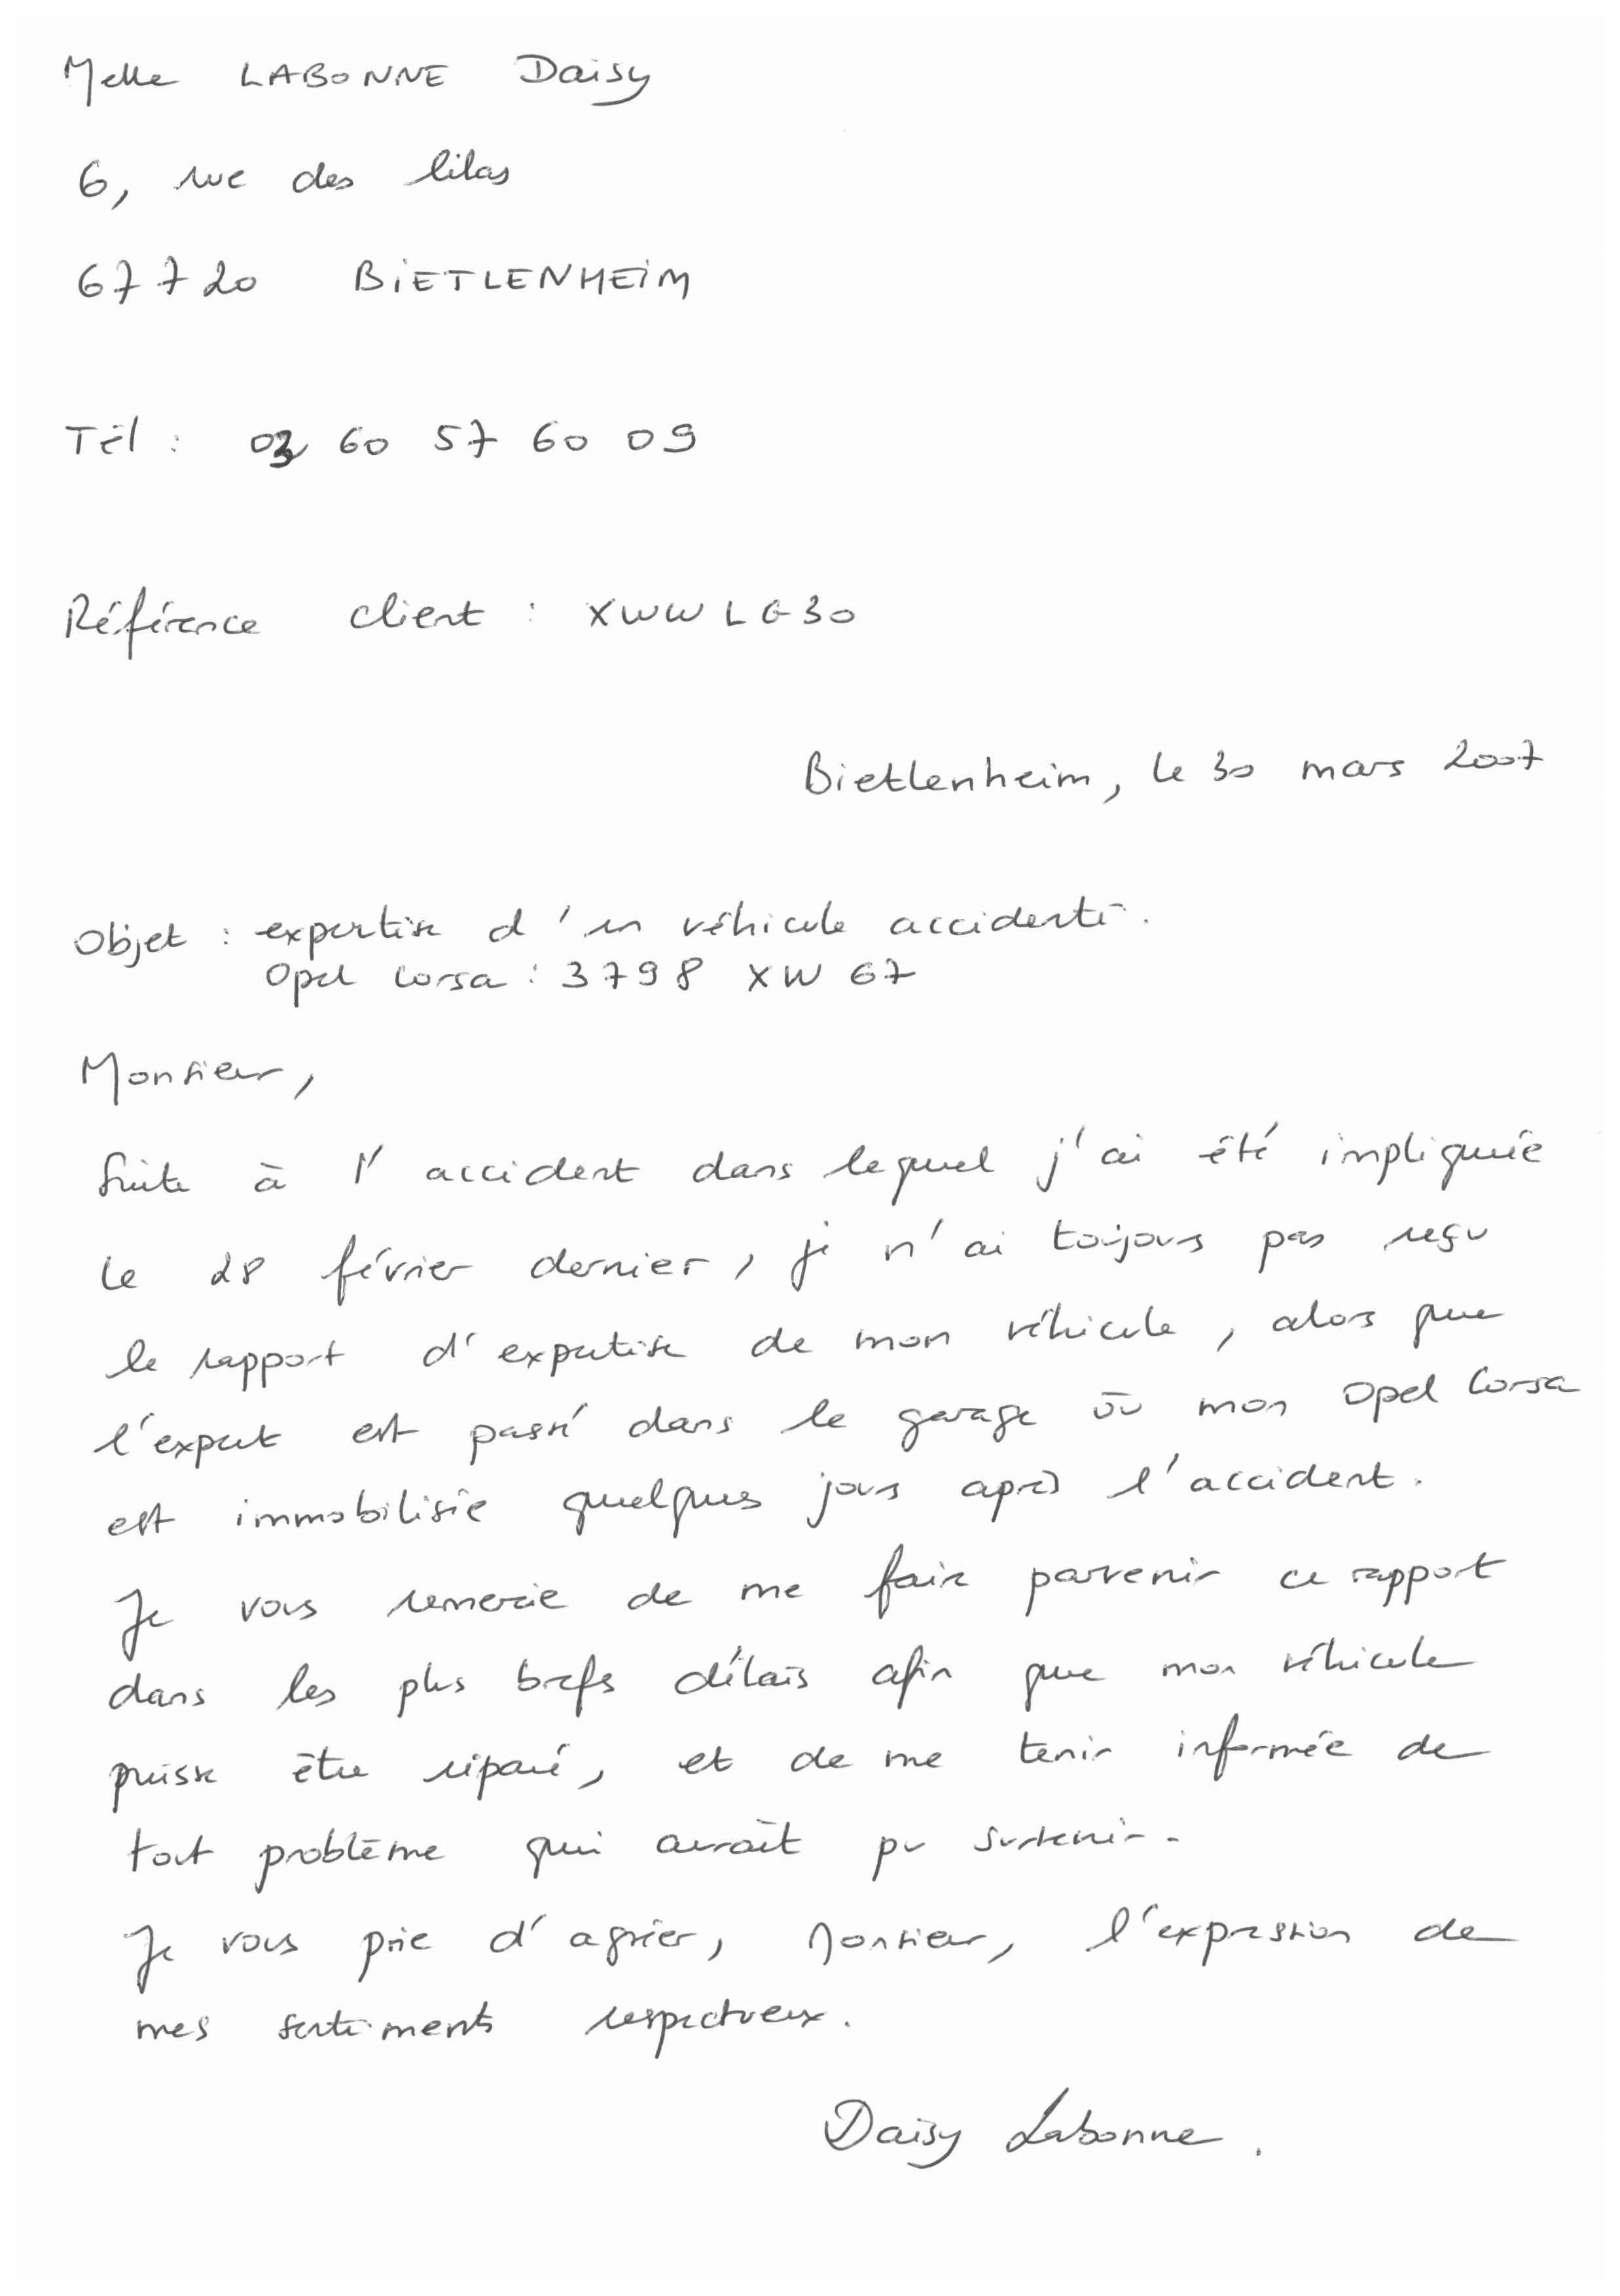 Melle LABONNE Daisy
6, rue des lilas
67720 BIETLENHEIM
Tél : 03 60 57 60 09
Référence client : XWWLG30
Bietlenheim, le 30 mars 2007
Objet : expertise d'un véhicule accidenté.
Opel Corsa : 3798 XW 67
Monsieur,
Suite à l'accident dans lequel j'ai été impliquée
le 28 février dernier, je n'ai toujours pas reçu
le rapport d'expertise de mon véhicule, alors que
l'expert est passé dans le garage où mon Opel Corsa
est immobilisée quelques jours après l'accident.
Je vous remercie de me faire parvenir ce rapport
dans les plus brefs délais afin que mon véhicule
puisse être réparé, et de me tenir informée de
tout problème qui aurait pu survenir.
Je vous prie d'agréer, Monsieur, l'expression de
mes sentiments respectueux.
Daisy Labonne.